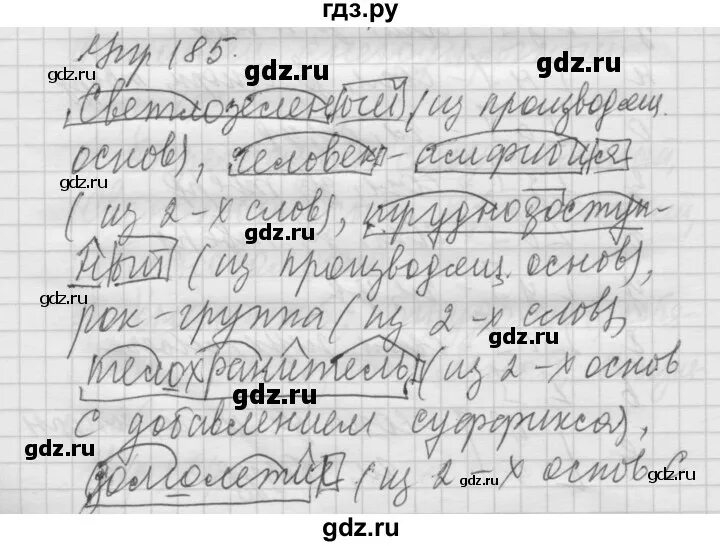 гдз.ру
Упр 185.
gdz.ru gdz.ru
Светлозеленый (из производящ.
gdz.ru
основ), человек-амфибия
gdz.ru gdz.ru
(из 2-х слов), труднодоступ-
gdz.ru
ный (из производящ. основ),
gdz.ru
рок-группа (из 2-х слов,
gdz.ru
телохранитель (из 2-х основ
gdz.ru
с добавлением суффикса),
gdz.ru
долголетие (из 2-х основ с
gdz.ru
gdz.ru